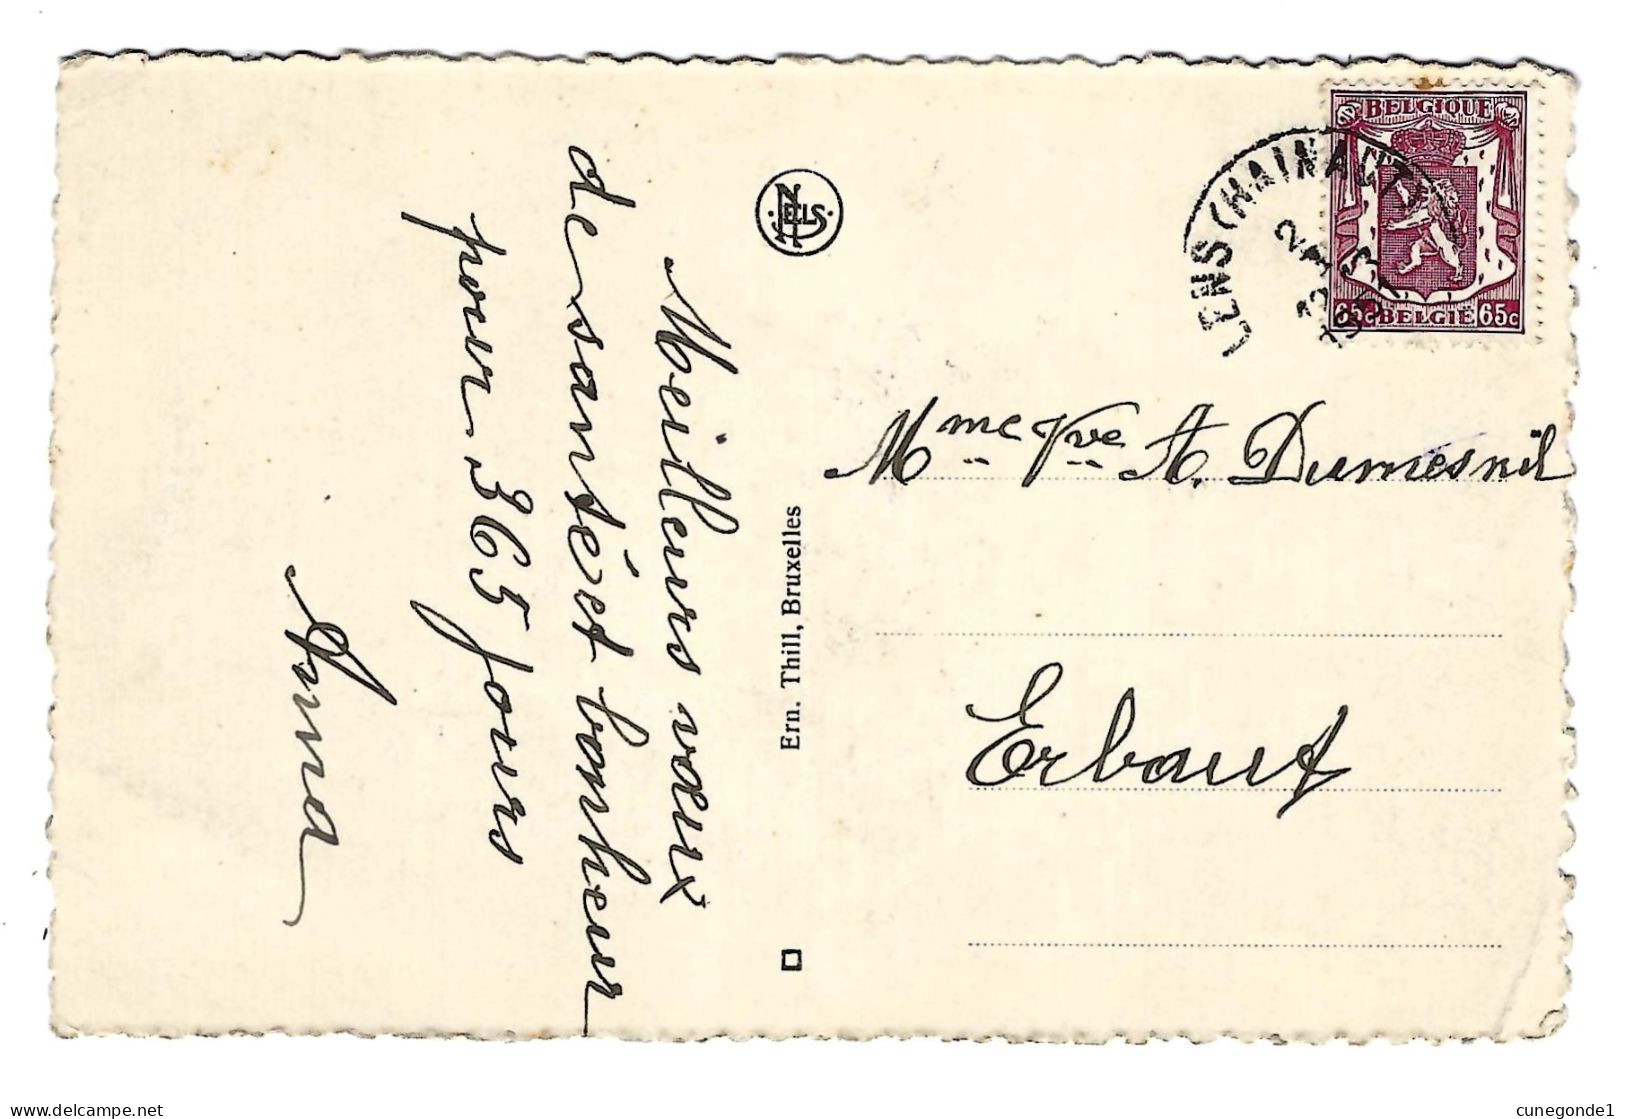 Meilleurs vœux
de santé et bonheur
pour 365 jours
Anna
NELS
Ern. Thill, Bruxelles
BELGIQUE
65c BELGIE 65c
LENS (HAINAUT)
Mme Vve A. Dumesnil
Erbaut
delcampe.net
cunegonde1